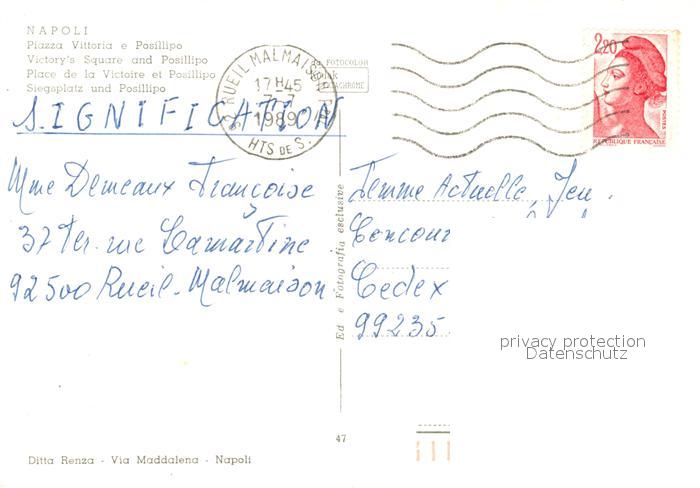 NAPOLI
Piazza Vittoria e Posillipo
Victory's Square and Posillipo
Place de la Victoire et Posillipo
Siegsplatz und Posillipo
FOTOCOLOR
92 RUEIL MALMAISON
17H45
7-7
1989
HTS DE S.
2,20
POSTES
REPUBLIQUE FRANCAISE
SIGNIFICATION
Mme Demeaux Françoise
37 Ter. rue Lamartine
92500 Rueil-Malmaison
Femme Actuelle, Jeu
Concour
Cedex
99235
Ed e Fotografia esclusive
privacy protection
Datenschutz
47
Ditta Renza - Via Maddalena - Napoli